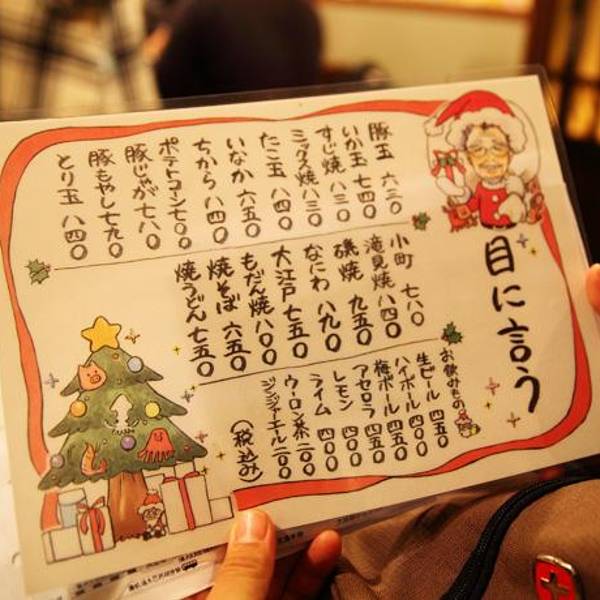 目に言う
豚玉 六三〇
いか玉 七四〇
すじ焼 八三〇
ミックス焼 八三〇
たこ玉 八四〇
いなか 六五〇
ちから 八四〇
ポテトコーン 七〇〇
豚じゃが 七八〇
豚もやし 七九〇
とり玉 八四〇
小町 七八〇
滝見焼 八四〇
磯焼 九五〇
なにわ 八九〇
大江戸 七五〇
もだん焼 八〇〇
焼そば 六五〇
焼うどん 七五〇
お飲みもの
生ビール 四五〇
ハイボール 四〇〇
梅ボール 四五〇
アセロラ 四五〇
レモン 四〇〇
ライム 四〇〇
ウーロン茶 二〇〇
ジンジャエール 二〇〇
(税込み)